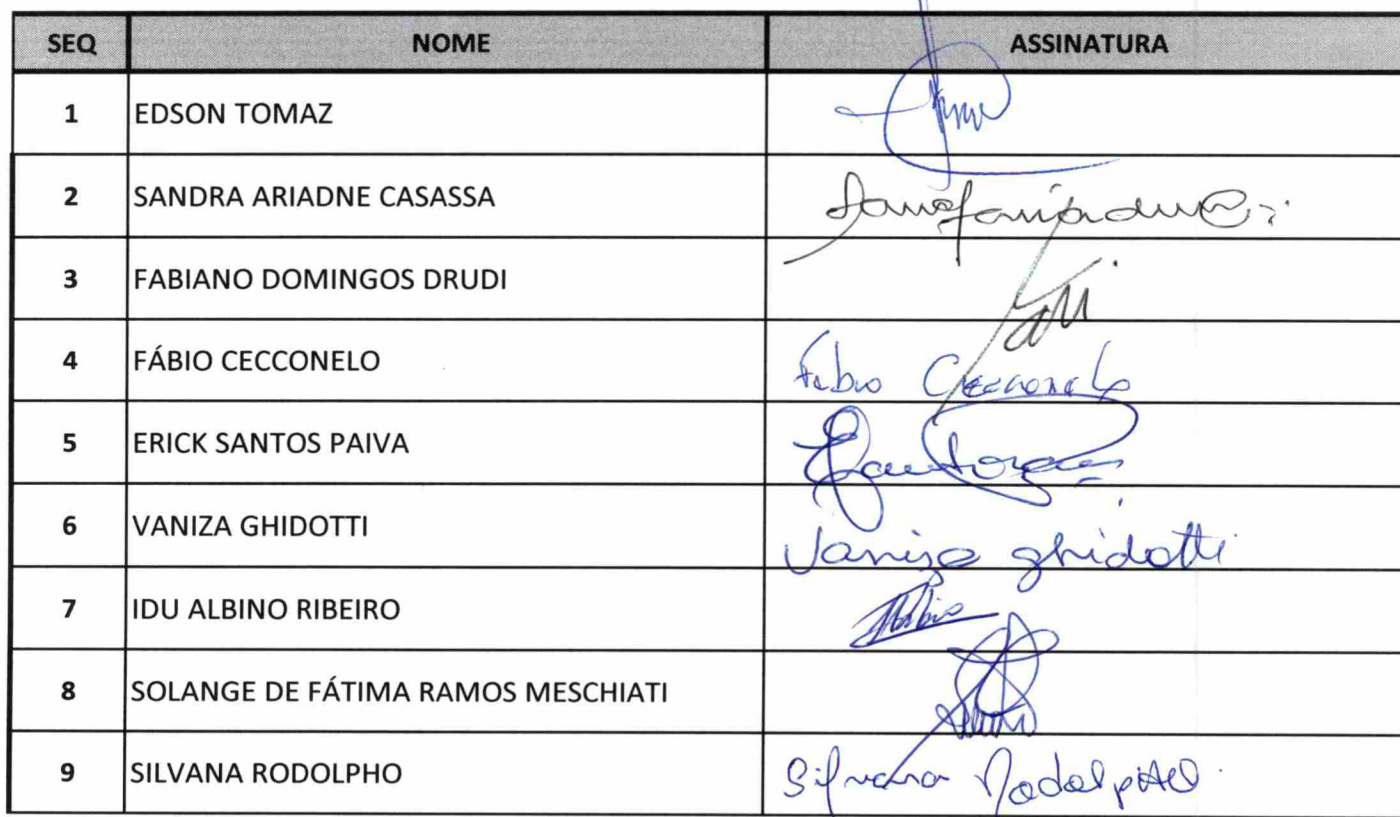 SEQ NOME ASSINATURA
1 EDSON TOMAZ
2 SANDRA ARIADNE CASASSA
3 FABIANO DOMINGOS DRUDI
4 FÁBIO CECCONELO Fabio Cecconelo
5 ERICK SANTOS PAIVA
6 VANIZA GHIDOTTI Vaniza ghidotti
7 IDU ALBINO RIBEIRO
8 SOLANGE DE FÁTIMA RAMOS MESCHIATI
9 SILVANA RODOLPHO Silvana Rodolpho